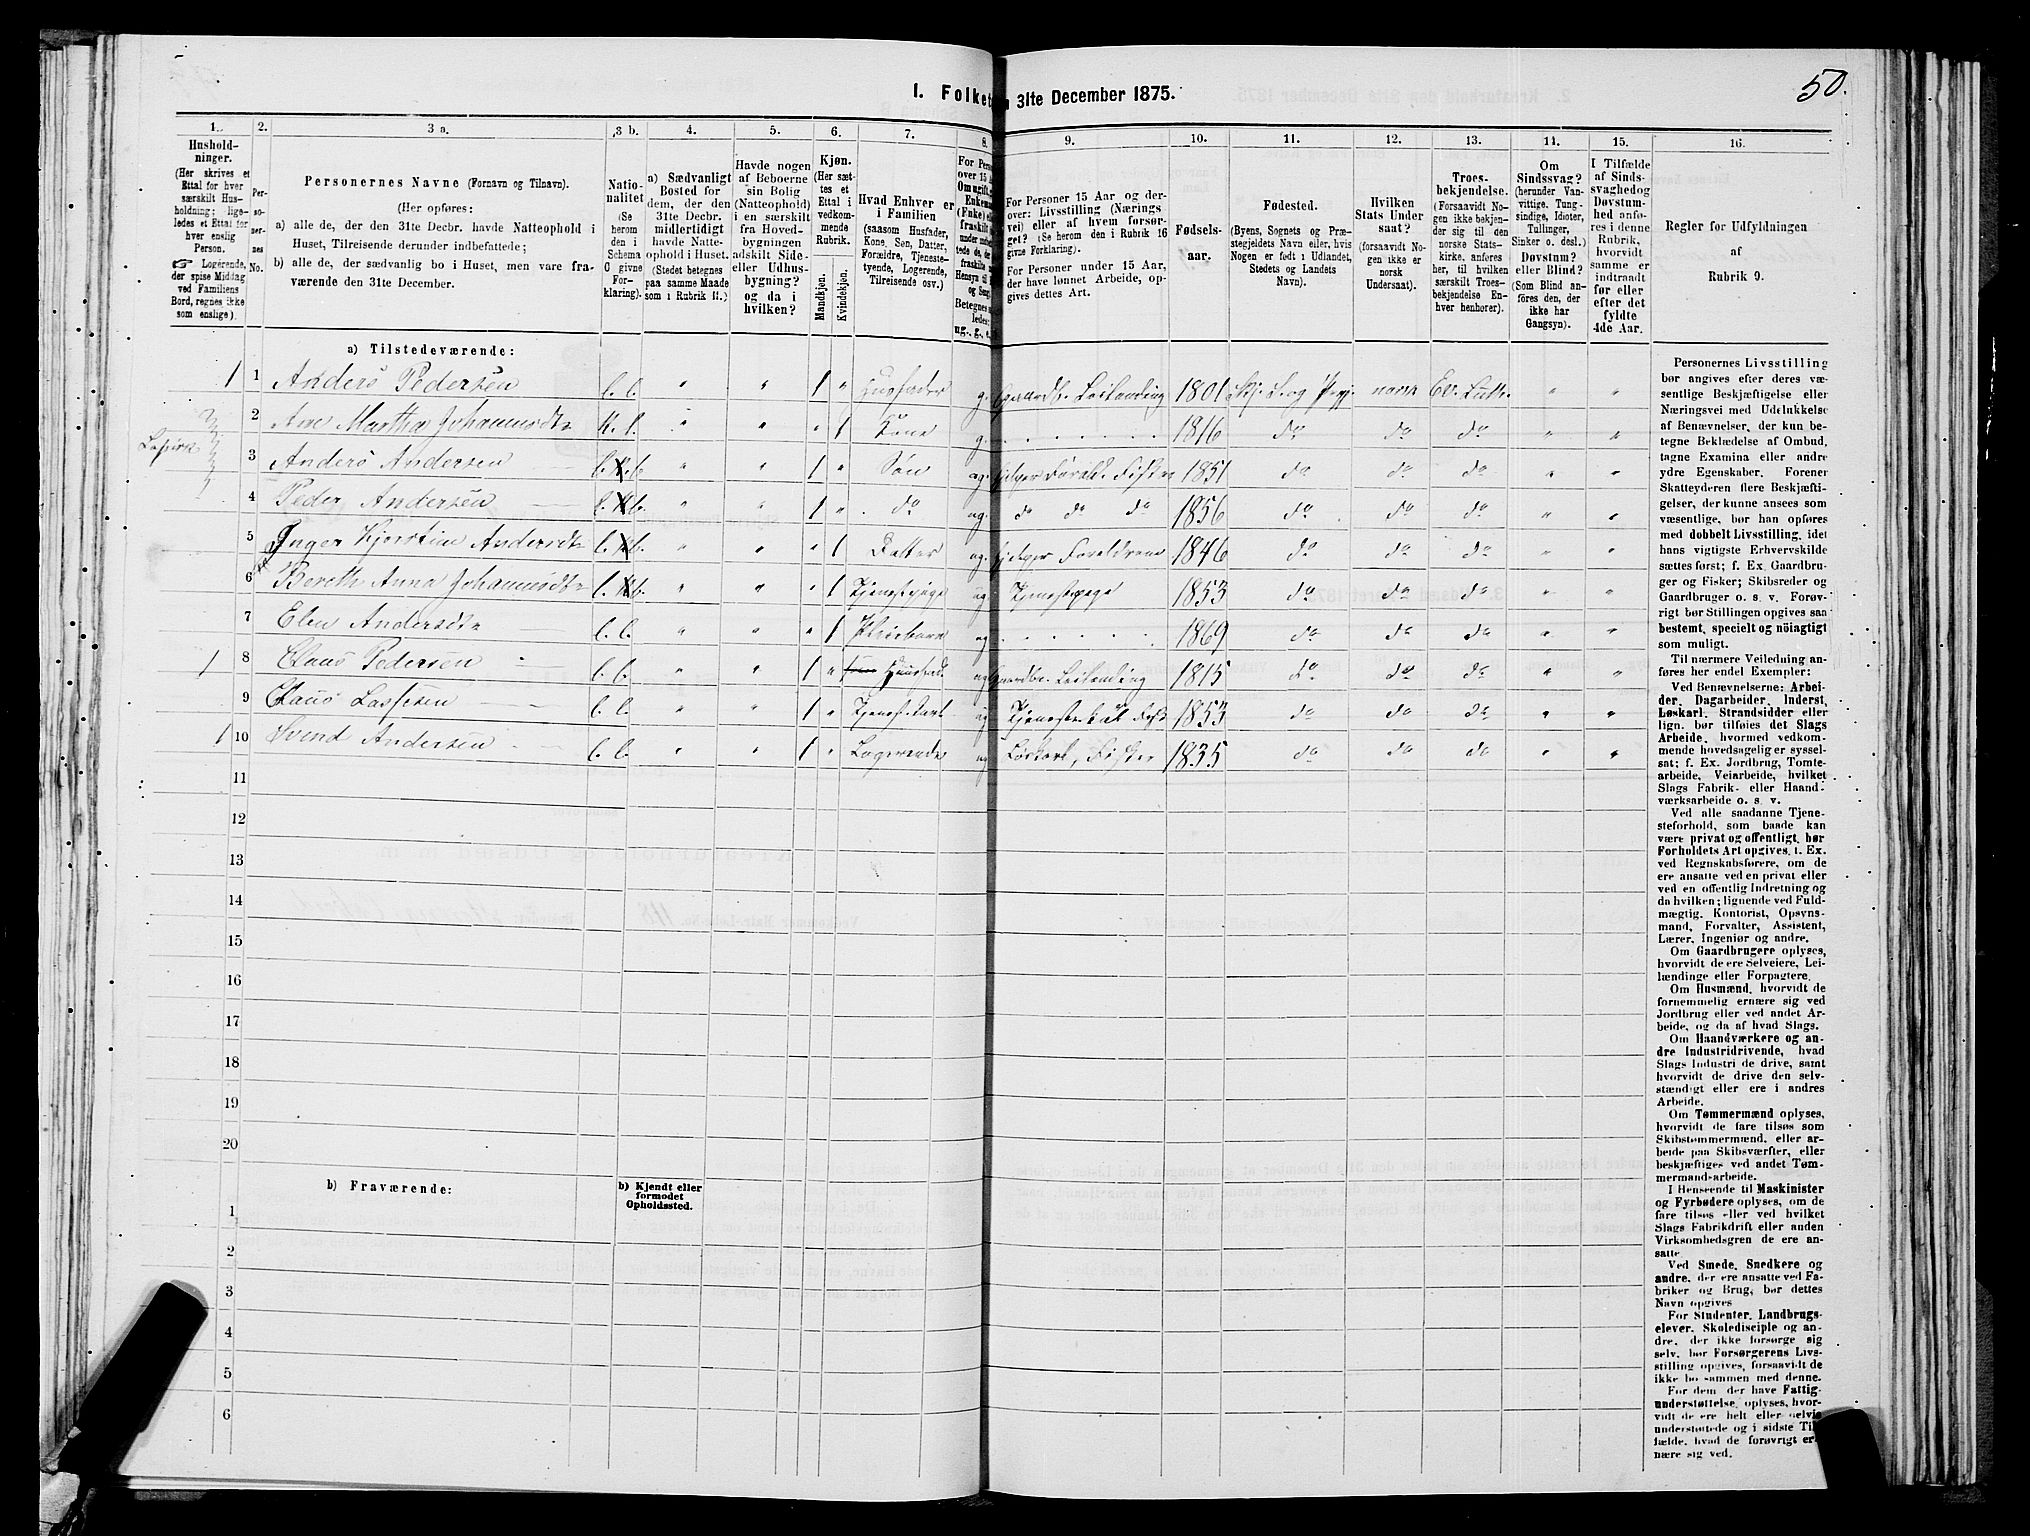 50.
I. Folket
31te December 1875.
1.
Hushold-
ninger.
(Her skrives et
Ettal for hver
særskilt Hus-
holdning; lige-
ledes et Ettal for
hver enslig
Person.
Logerende,
der spise Middag
ved Familiens
Bord, regnes ikke
som enslige).
2.
Per-
so-
ner-
nes
No.
3 a.
Personernes Navne (Fornavn og Tilnavn).
(Her opføres:
a) alle de, der den 31te Decbr. havde Natteophold i
Huset, Tilreisende derunder indbefattede;
b) alle de, der sædvanlig bo i Huset, men vare fra-
værende den 31te December.
3 b.
Natio-
nalitet
(Se
herom
den i
Schema
C givne
For-
klaring).
4.
a) Sædvanligt
Bosted for
dem, der den
31te Decbr.
midlertidigt
havde Natte-
ophold i Huset.
(Stedet betegnes
paa samme Maade
som i Rubrik 11.)
5.
Havde nogen
af Beboerne
sin Bolig
(Natteophold)
i en særskilt
fra Hoved-
bygningen
adskilt Side-
eller Udhus-
bygning?
og da i
hvilken?
6.
Kjøn.
(Her sæt-
tes et
Ettal i
vedkom-
mende
Rubrik.
Mandkjøn.
Kvindekjøn.
7.
Hvad Enhver er
i Familien
(saasom Husfader,
Kone, Søn, Datter,
Forældre, Tjeneste-
tyende, Logerende,
Tilreisende osv.)
8.
For Perso
over 15 A
Om ugift, g
Enkema
(Enke) ell
fraskilt
9.
For Personer 15 Aar og der-
over: Livsstilling (Nærings
vei) eller af hvem forsør-
get? (Se herom den i Rubrik 16
givne Forklaring).
For Personer under 15 Aar,
der have lønnet Arbeide, op-
gives dettes Art.
10.
Fødsels-
aar.
11.
Fødested.
(Byens, Sognets og Præ-
stegjeldets Navn eller, hvis
Nogen er født i Udlandet,
Stedets og Landets
Navn).
12.
Hvilken
Stats Under
saat?
(forsaavidt No-
gen ikke er
norsk
Undersaat).
13.
Troes-
bekjendelse.
(Forsaavidt No-
gen ikke bekjen-
der sig til den
norske Stats-
kirke, anføres
her, til hvilken
særskilt Troes-
bekjendelse En-
hver henhører).
14.
Om
Sindssvag?
(herunder Van-
vittige, Tung-
sindige, Idioter,
Tullinger,
Sinker o. desl.)
Døvstum?
eller Blind?
(Som Blind an-
føres den, der
ikke har
Gangsyn).
15.
I Tilfælde
af Sinds-
svaghed og
Døvstum-
hed anfø-
res i denne
Rubrik,
hvorvidt
samme er
indtraadt
før eller
efter det
fyldte
4de Aar.
16.
Regler for Udfyldningen
af
Rubrik 9.
a) Tilstedeværende:
1 1 Anders Pedersen l. l. " " 1 " Husfader g. Gaardb. Leilending 1801 norsk Ev. Luth. " "
2 Ane Martha Johannesdtr " " " 1 Kone g. 1816 do do do " "
3 Anders Andersen " " 1 " Søn ug. 1851 do do do " "
4 Peder Andersen " " 1 " do ug. do do do 1856 do do do " "
5 Inger Kjerstine Andersdtr " " " 1 Datter ug. hjelper Foreldrene 1846 do do do " "
6 Bereth Anna Johannesdtr " " " 1 Tjenestpige ug Tjenestpige 1853 do do do " "
7 Elen Andersdtr l. l. " " " 1 Pleiebarn ug 1869 do do do " "
1 8 Claus Pedersen l. l. " " 1 " ug Gaardbr. Leilending 1815 do do do " "
9 Claus Lassesen l. l. " " 1 " Tjenest.karl ug 1853 do do do " "
1 10 Svend Andersen l. l. " " 1 " Logerende ug Løskarl, Fisker 1835 do do do " "
11
12
13
14
15
16
17
18
19
20
b) Fraværende:
b) Kjendt eller
formodet
Opholdssted.
1
2
3
4
5
6
Personernes Livsstilling
bør angives efter deres væ-
sentlige Beskjæftigelse eller
Næringsvei med Udelukkelse
af Benævnelser, der kun be-
tegne Beklædelse af Ombud,
tagne Examina eller andre
ydre Egenskaber. Forener
Skatteyderen flere Beskjæfti-
gelser, der kunne ansees som
væsentlige, bør han opføres
med dobbelt Livsstilling, idet
hans vigtigste Erhvervskilde
sættes først; f. Ex. Gaardbru-
ger og Fisker; Skibsreder og
Gaardbruger o. s. v. Forøv-
rigt bør Stillingen opgives saa
bestemt, specielt og nöiagtigt
som muligt.
Til nærmere Veiledning an-
føres her endel Exempler:
Ved Benævnelserne: Arbei-
der, Dagarbeider, Inderst,
Løskarl, Strandsidder eller
lign. bør tilføies det Slags
Arbeide, hvormed vedkom-
mende hovedsagelig er syssel-
sat; f. Ex. Jordbrug, Tomte-
arbeide, Veiarbeide, hvilket
Slags Fabrik- eller Haand-
værksarbeide o. s. v.
Ved alle saadanne Tjene-
steforhold, som baade kan
være privat og offentligt, bør
Forholdets Art opgives, f. Ex.
ved Regnskabsførere, om de
ere ansatte ved en privat eller
ved en offentlig Indretning og
da hvilken; lignende ved Fuld-
mægtig, Kontorist, Opsyns-
mand, Forvalter, Assistent,
Lærer, Ingeniør og andre.
Om Gaardbrugere oplyses,
hvorvidt de ere Selveiere, Lei-
lændinge eller Forpagtere.
Om Husmænd, hvorvidt de
fornemmelig ernære sig ved
Jordbrug eller ved andet Ar-
beide, og da af hvad Slags.
Om Haandværkere og an-
dre Industridrivende, hvad
Slags Industri de drive, samt
hvorvidt de drive den selv-
stændigt eller ere i andres
Arbeide.
Om Tømmermænd oplyses,
hvorvidt de fare tilsøs som
Skibstømmermænd, eller ar-
beide paa Skibsværfter, eller
beskjæftiges ved andet Tøm-
mermandsarbeide.
I Henseende til Maskinister
og Fyrbødere oplyses, om de
fare tilsøs eller ved hvilket
Slags Fabrikdrift eller anden
Virksomhedsgren de ere an-
satte.
Ved Smede, Snedkere og
andre, der ere ansatte ved Fa-
briker og Brug, bør dettes
Navn opgives
For Studenter, Landbrugs-
elever, Skoledisciple og an-
dre, der ikke forsørge sig
selv, bør Forsørgerens Livs-
stilling opgives, forsaavidt de
ikke bo sammen med denne.
For dem, der have Fattig-
understøttelse, oplyses, hvor-
vidt de ere helt eller delvis
understøttede og i sidste Til-
fælde, hvad de forøvrigt er-
nære sig ved.